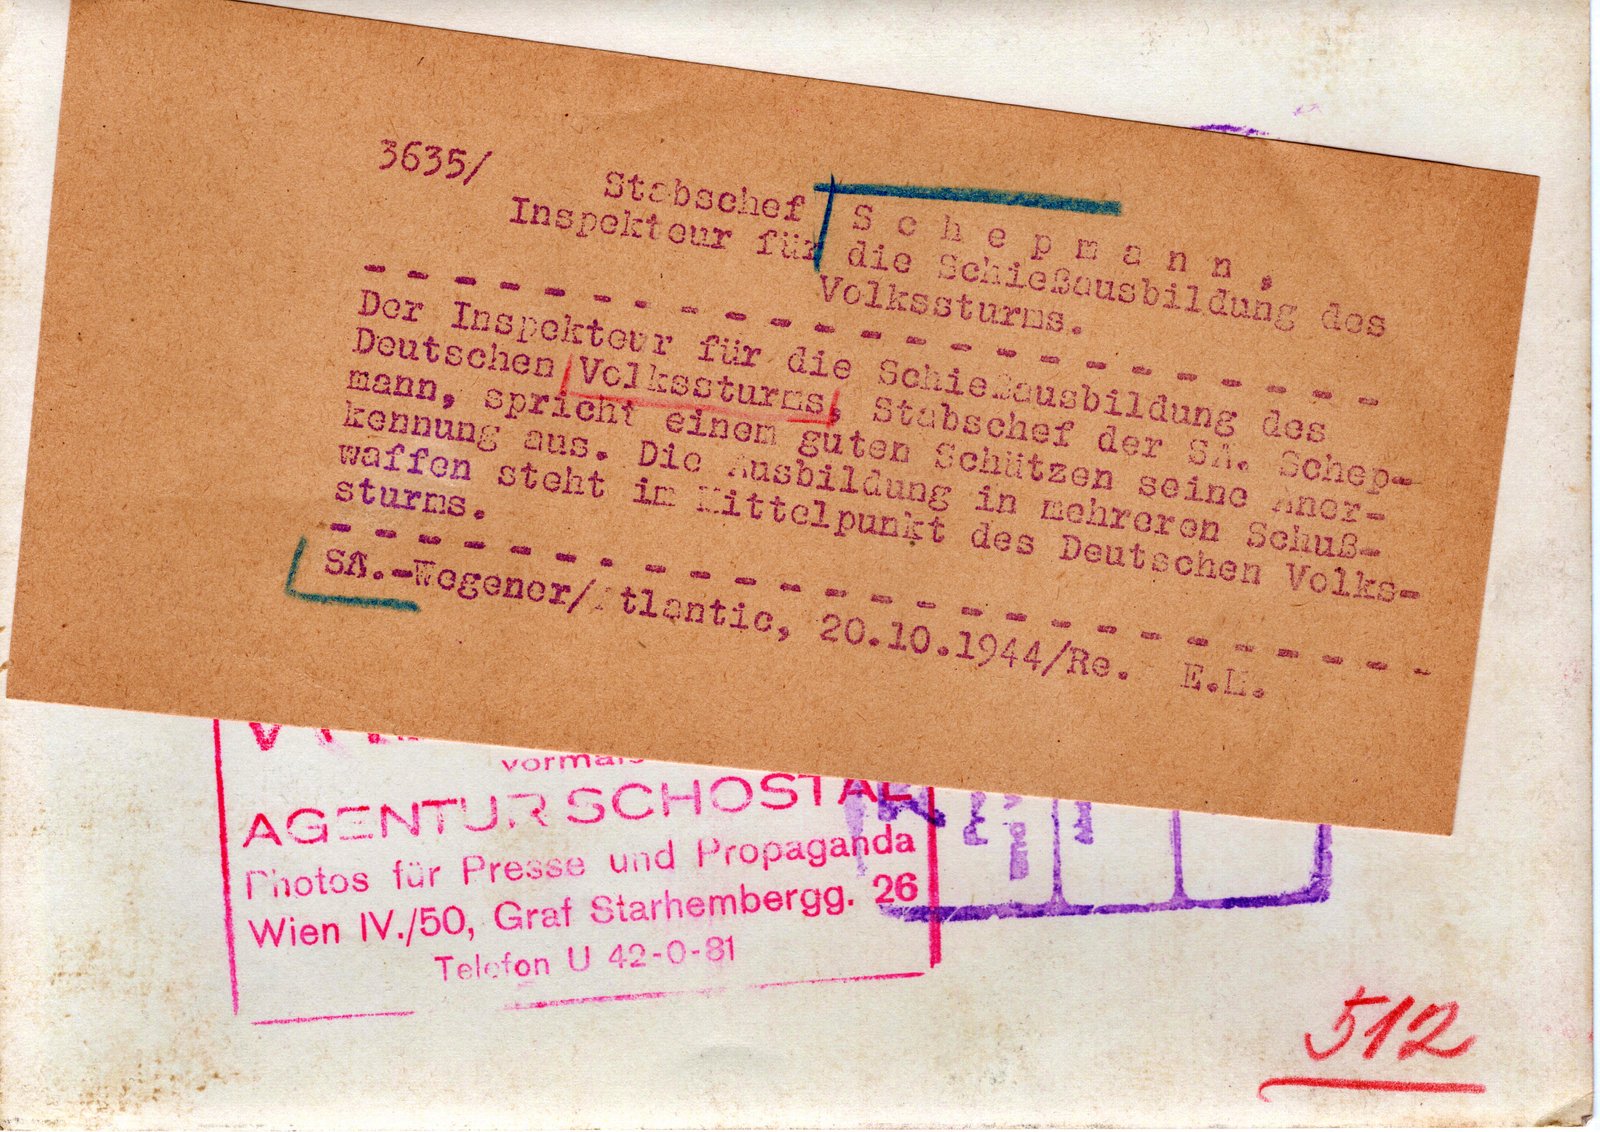 3635/
Stabschef Schepmann,
Inspekteur für die Schießausbildung des
Volkssturms.
Der Inspekteur für die Schießausbildung des
Deutschen Volkssturms, Stabschef der SA. Schep-
mann, spricht einem guten Schützen seine Aner-
kennung aus. Die Ausbildung in mehreren Schuß-
waffen steht im Mittelpunkt des Deutschen Volks-
sturms.
SA.-Wegener/Atlantic, 20.10.1944/Re. E.M.
vormals
AGENTUR SCHOSTAL
Photos für Presse und Propaganda
Wien IV./50, Graf Starhembergg. 26
Telefon U 42-0-81
512